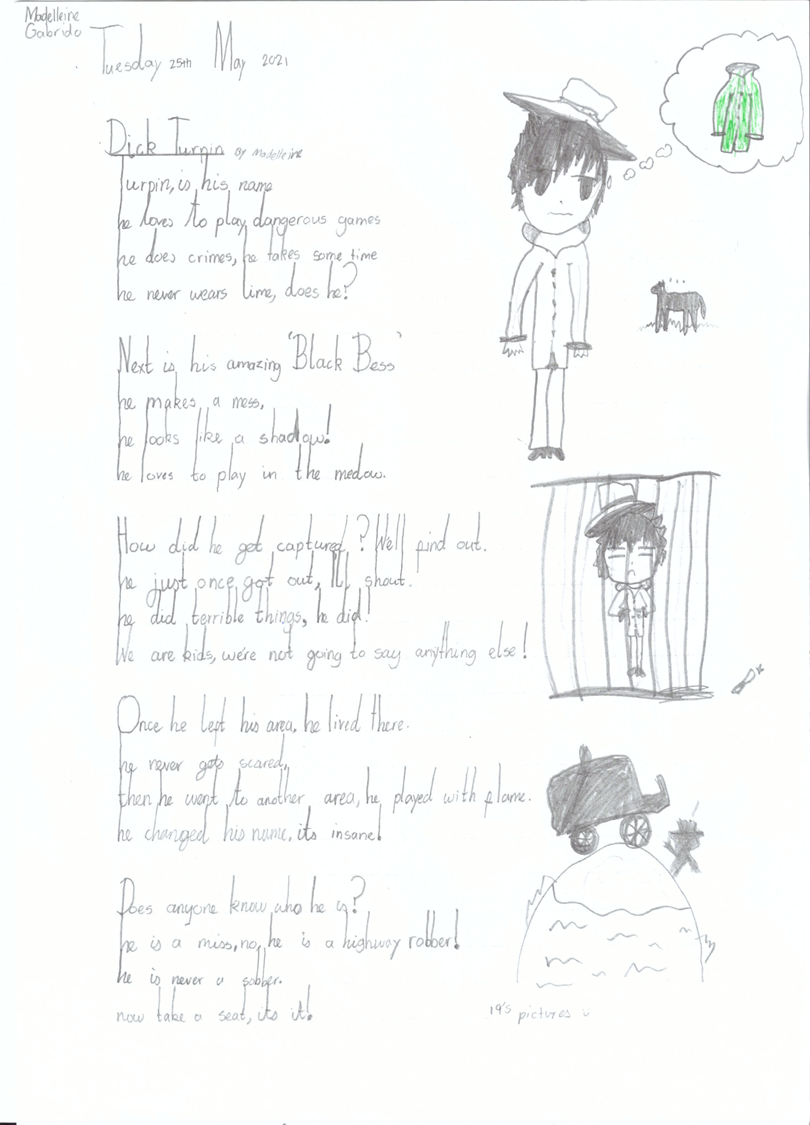 Madelleine
Gabrido
Tuesday 25th May 2021
Dick Turpin By Madelleine
Turpin, is his name
he loves to play dangerous games
he does crimes, he takes some time
he never wears lime, does he?
Next is his amazing 'Black Bess'
he makes a mess,
he looks like a shadow!
he loves to play in the medow.
How did he get captured? We'll find out.
he just once got out, I'll shout.
he did terrible things, he did!
We are kids, we're not going to say anything else!
Once he left his area, he lived there.
he never gets scared,
then he went to another area, he played with flame.
he changed his name, its insane!
Does anyone know who he is?
he is a miss, no, he is a highway robber!
he is never a sobber.
now take a seat, its it!
19's pictures